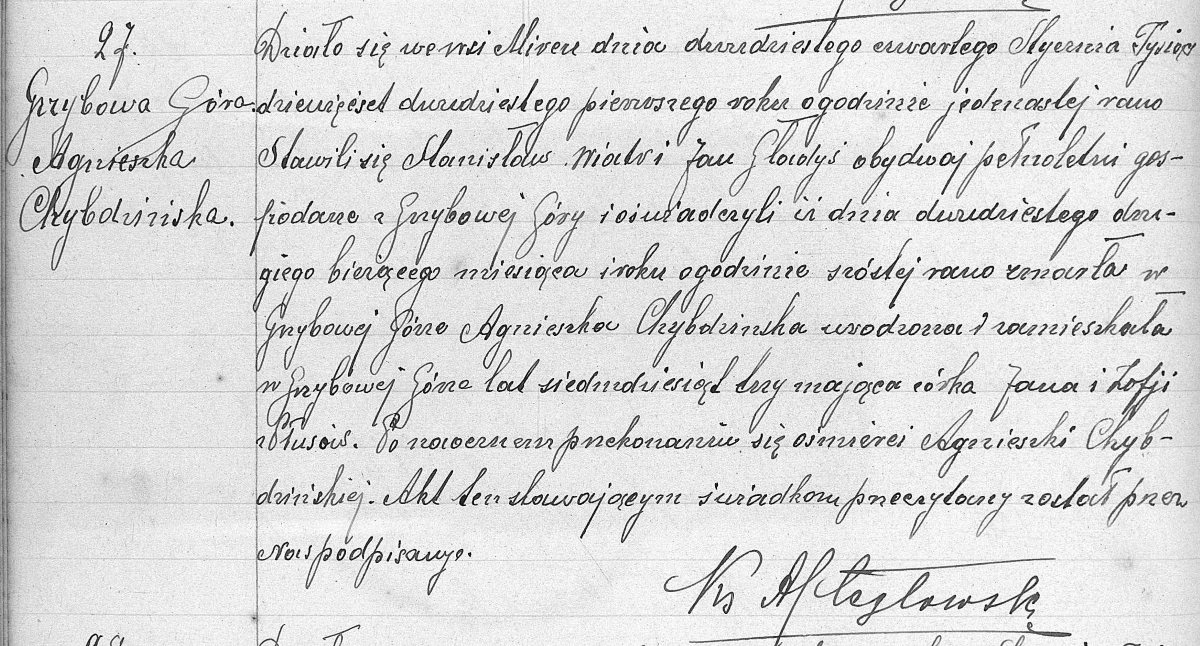 27.
Grzybowa Góra.
Agnieszka
Chybdzińska.
Działo się we wsi Mircu dnia dwudziestego czwartego Stycznia Tysiąc
dziewięćset dwudziestego pierwszego roku o godzinie jedenastej rano
Stawili się Stanisław Wiatr i Jan Gładyś obydwaj pełnoletni gos-
podarze z Grzybowej Góry i oświadczyli iż dnia dwudziestego dru-
giego bieżącego miesiąca i roku o godzinie szóstej rano zmarła w
Grzybowej Górze Agnieszka Chybdzinska urodzona i zamieszkała
w Grzybowej Górze lat siedmdziesiąt trzy mająca córka Jana i Zofji
Płusów. Po naocznem przekonaniu się o śmierci Agnieszki Chyb-
dzińskiej. Akt ten stawającym świadkom przeczytany został przez
Nas podpisany.
Ks A